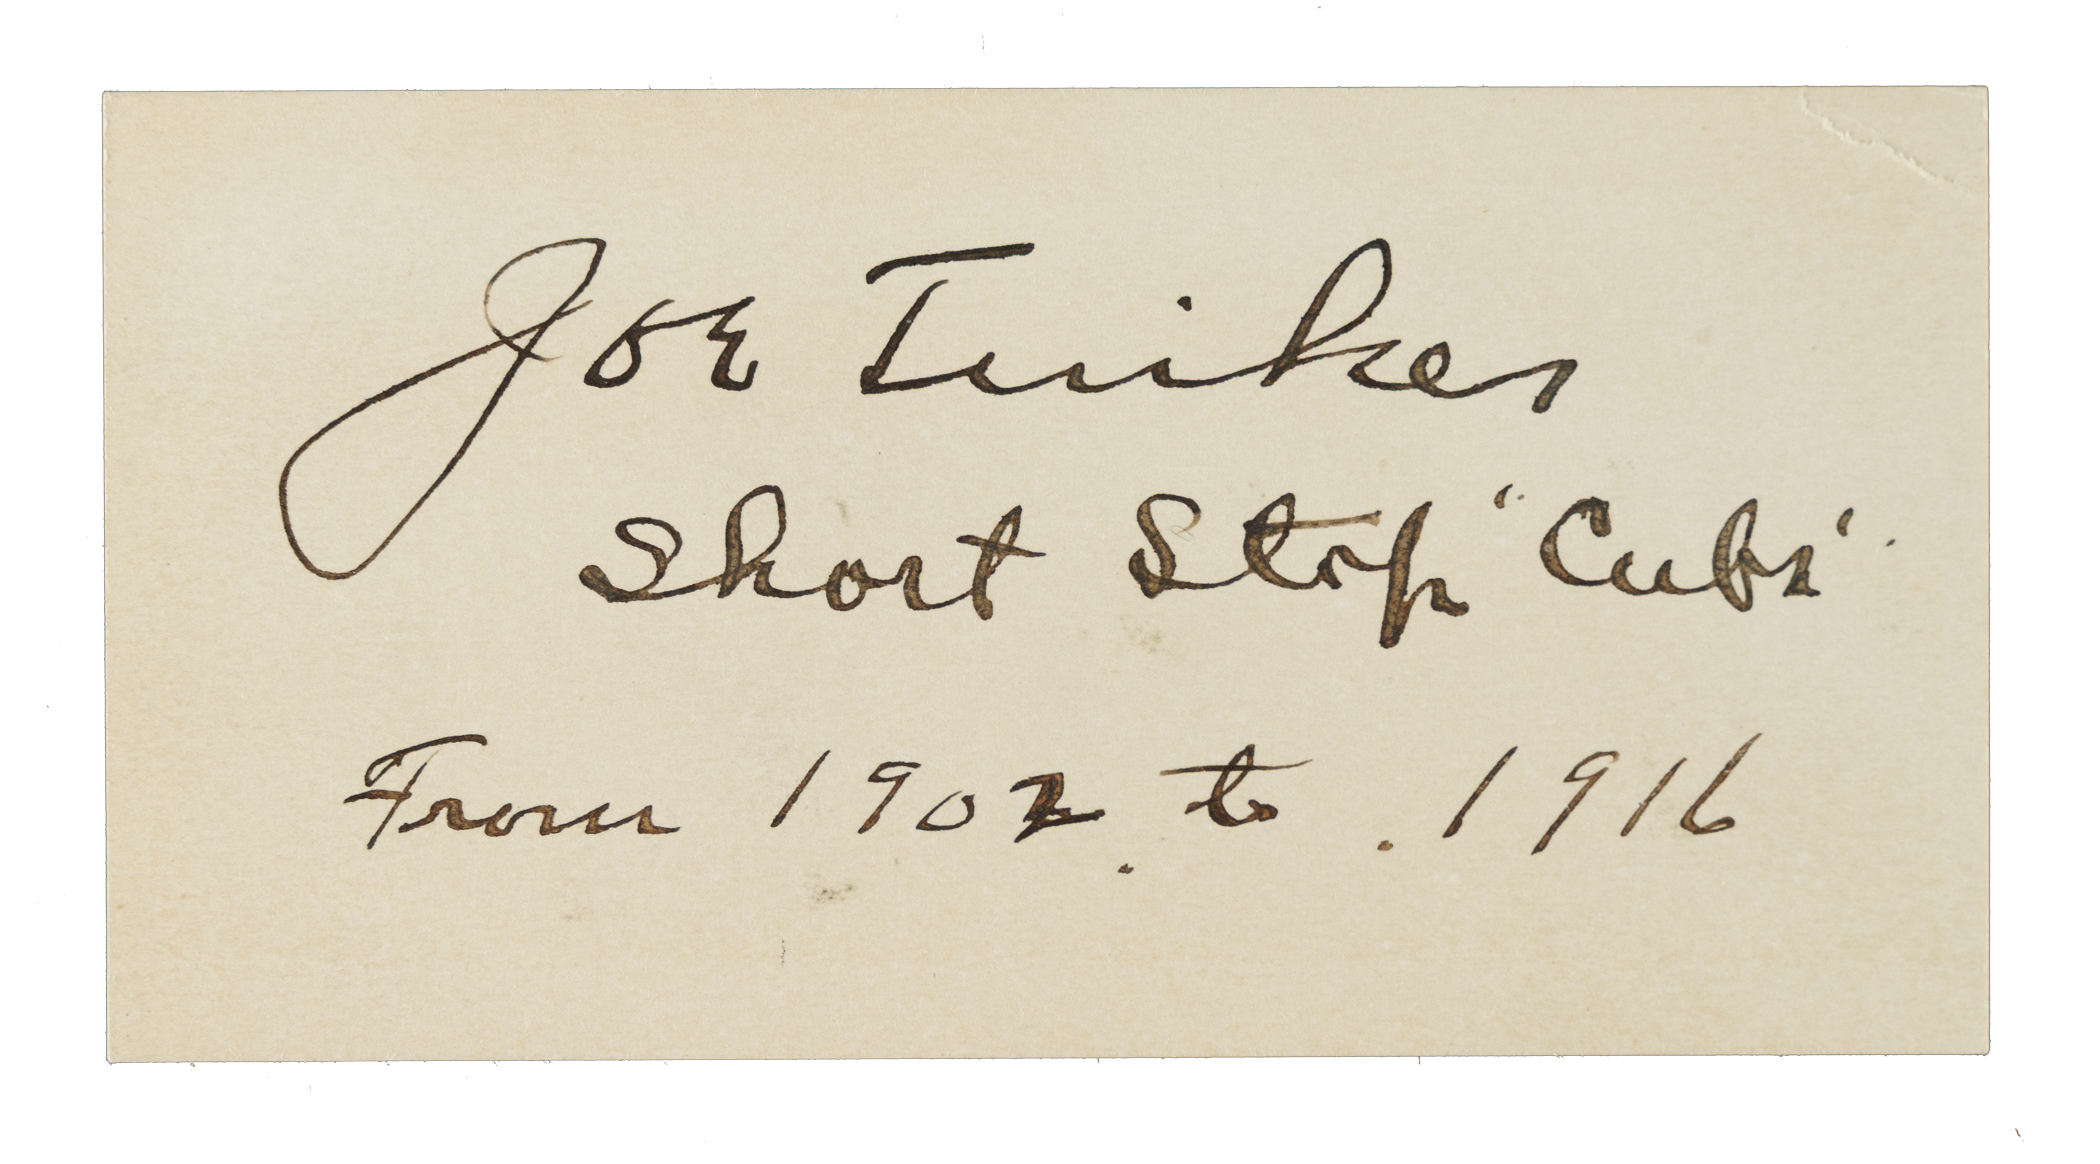 Joe Tinker
Short Stop "Cubs".
From 1902. to. 1916